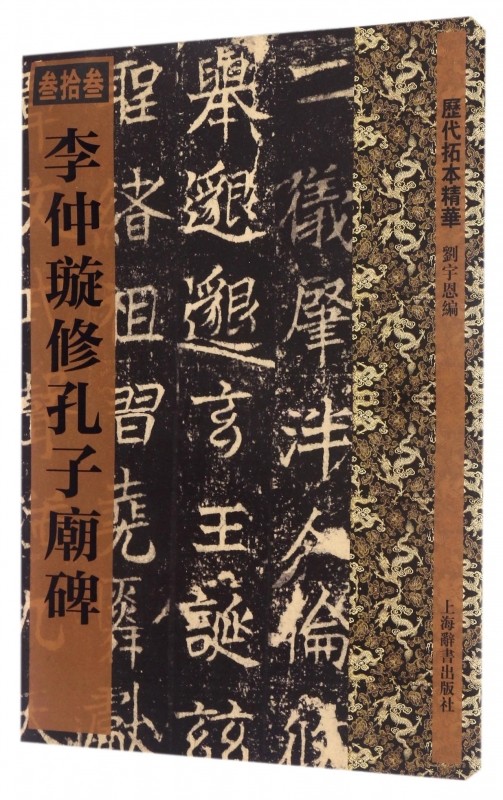 歷代拓本精華 劉宇恩編
上海辭書出版社
二儀肇泮人倫攸
舉邈邈玄王誕茲
聖習堯舜
叁拾叁
李仲璇修孔子廟碑